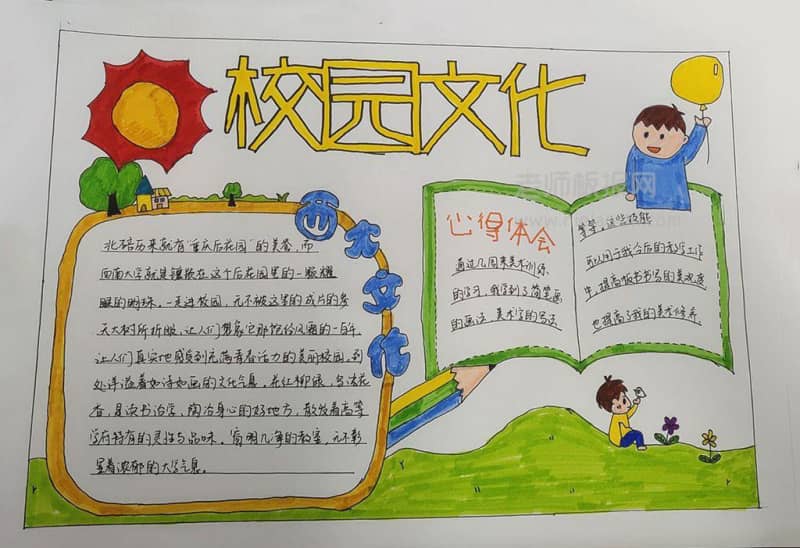 校园文化
西大文化
北碚历来就有“重庆后花园”的美誉，而
西南大学就是镶嵌在这个后花园里的一颗耀
眼的明珠。一走进校园，无不被这里的成片的参
天大树所折服，让人们想象它那饱经风霜的一百年，
让人们真实地感受到充满青春活力的美丽校园，到
处洋溢着如诗如画的文化气息。花红柳绿，鸟语花
香，是读书治学，陶冶身心的好地方，散发着高等
学府特有的灵性与品味。窗明几净的教室，无不彰
显着浓郁的大学气息。
心得体会
通过几周来美术训练
的学习，我学到了简笔画
的画法，美术字的写法
等等，这些技能
可以用于我今后的教学工作
中，提高板书书写的美观度
也提高了我的美术修养。
老师板报网